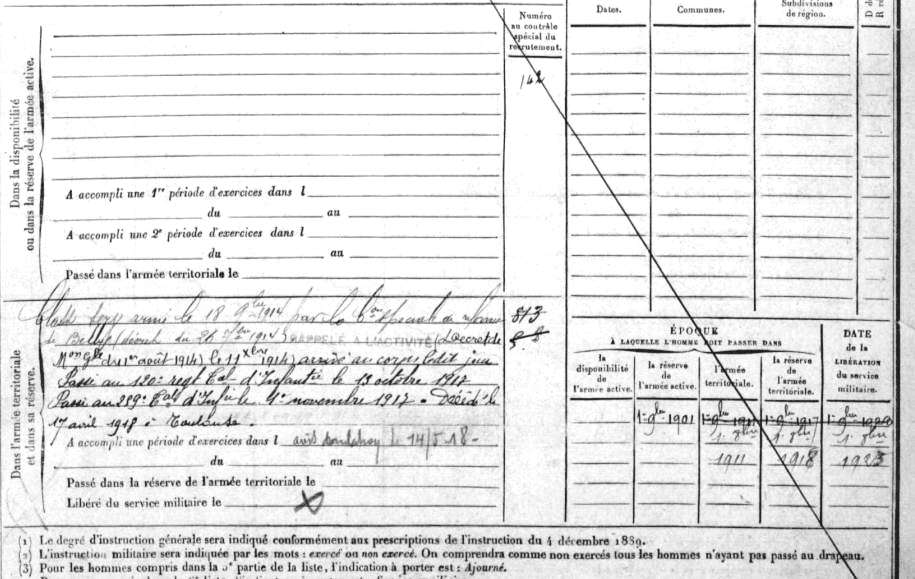 Numéro
au contrôle
spécial du
recrutement.
Dates.
Communes.
Subdivisions
de région.
142
Dans la disponibilité
ou dans la réserve de l'armée active.
A accompli une 1re période d'exercices dans l
du au
A accompli une 2e période d'exercices dans l
du au
Passé dans l'armée territoriale le
Dans l'armée territoriale
et dans sa réserve.
Classé serv armé le 18 9bre 1914 par la Con spéciale de réforme
de décret du 26 1914) RAPPELÉ A L'ACTIVITÉ (Décret de
Mon Gle du 1er août 1914) le 11 Xbre 1914) arrivé au corps ledit jour
Passé au 120e regt Tal d'Infantie le 13 octobre 1917
Passé au 259e Tal d'Infie le 1er novembre 1917 - Décédé le
17 avril 1918 à Toulouse.
A accompli une période d'exercices dans l avis le 14/5 18-
du au
Passé dans la réserve de l'armée territoriale le
Libéré du service militaire le
813
ÉPOQUE
À LAQUELLE L'HOMME DOIT PASSER DANS
la
disponibilité
de
l'armée active.
la réserve
de
l'armée active.
l'armée
territoriale.
la réserve
de
l'armée
territoriale.
DATE
de la
LIBÉRATION
du service
militaire.
1er 9bre 1901
1er 9bre 1911
1er 9bre 1917
1er 9bre
1911
1918
(1) Le degré d'instruction générale sera indiqué conformément aux prescriptions de l'instruction du 4 décembre 1889.
(2) L'instruction militaire sera indiquée par les mots : exercé ou non exercé. On comprendra comme non exercés tous les hommes n'ayant pas passé au drapeau.
(3) Pour les hommes compris dans la 5e partie de la liste, l'indication à porter est : Ajourné.